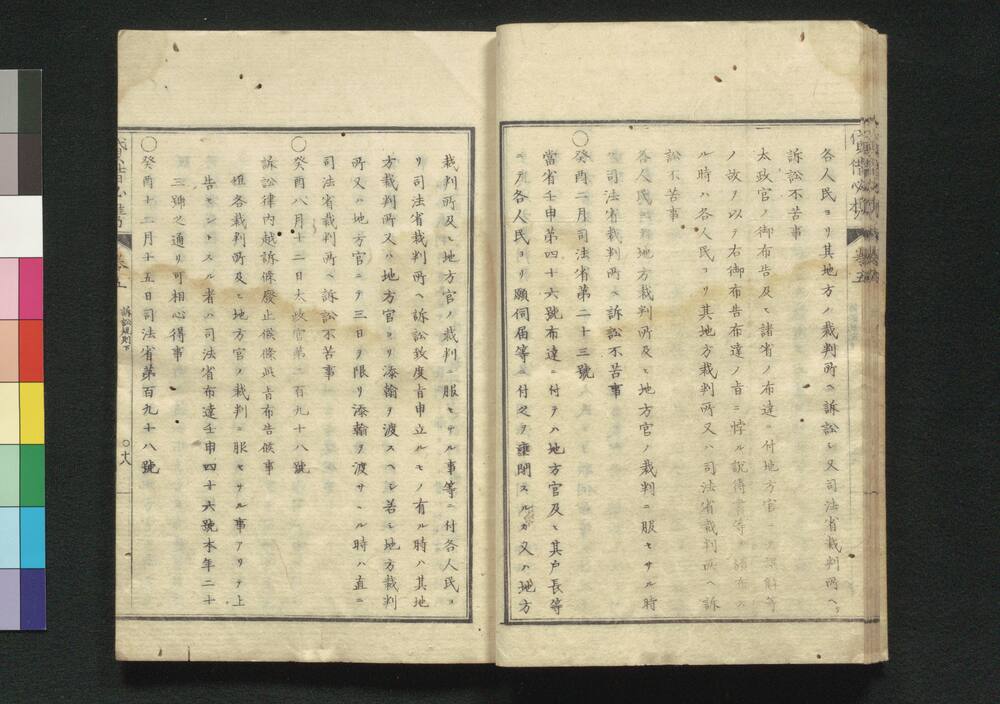 各人民ヨリ其地方ノ裁判所ヘ訴訟シ又司法省裁判所ヘ
訴訟不苦事
一太政官ノ御布告及ヒ諸省ノ布達ニ付地方官ニテ誤解等
ノ故ヲ以テ右御布告布達ノ旨ニ悖ル説得書等ヲ頒布ス
ル時ハ各人民ヨリ其地方裁判所又ハ司法省裁判所ヘ訴
訟不苦事
各人民ヨリ地方裁判所及ヒ地方官ノ裁判ニ服セサル時
司法省裁判所ヘ訴訟不苦事
〇癸酉二月司法省第二十三號
當省壬申第四十六號布達ニ付テハ地方官及ヒ其戸長等
ニテ各人民ヨリ願伺届等ニ付之ヲ壅閉スルカ又ハ地方
裁判所及ヒ地方官ノ裁判ニ服セサル事等ニ付各人民ヨ
リ司法省裁判所ヘ訴訟致度旨申立ルモノ有ル時ハ其地
方裁判所又ハ地方官ヨリ添翰ヲ渡スヘシ若シ地方裁判
所又ハ地方官ニテ三日ヲ限リ添翰ヲ渡サヽル時ハ直ニ
司法省裁判所ヘ訴訟不苦事
〇癸酉八月十二日太政官第二百九十八號
訴訟律内越訴條廢止候條此旨布告候事
但各裁判所及ヒ地方官ノ裁判ニ服セサル事アリテ上
告セントスル者ハ司法省布達壬申四十六號本年二十
三號之通リ可相心得事
〇癸酉十二月十五日司法省第百九十八號
卷五
訴訟規則下
〇廿八